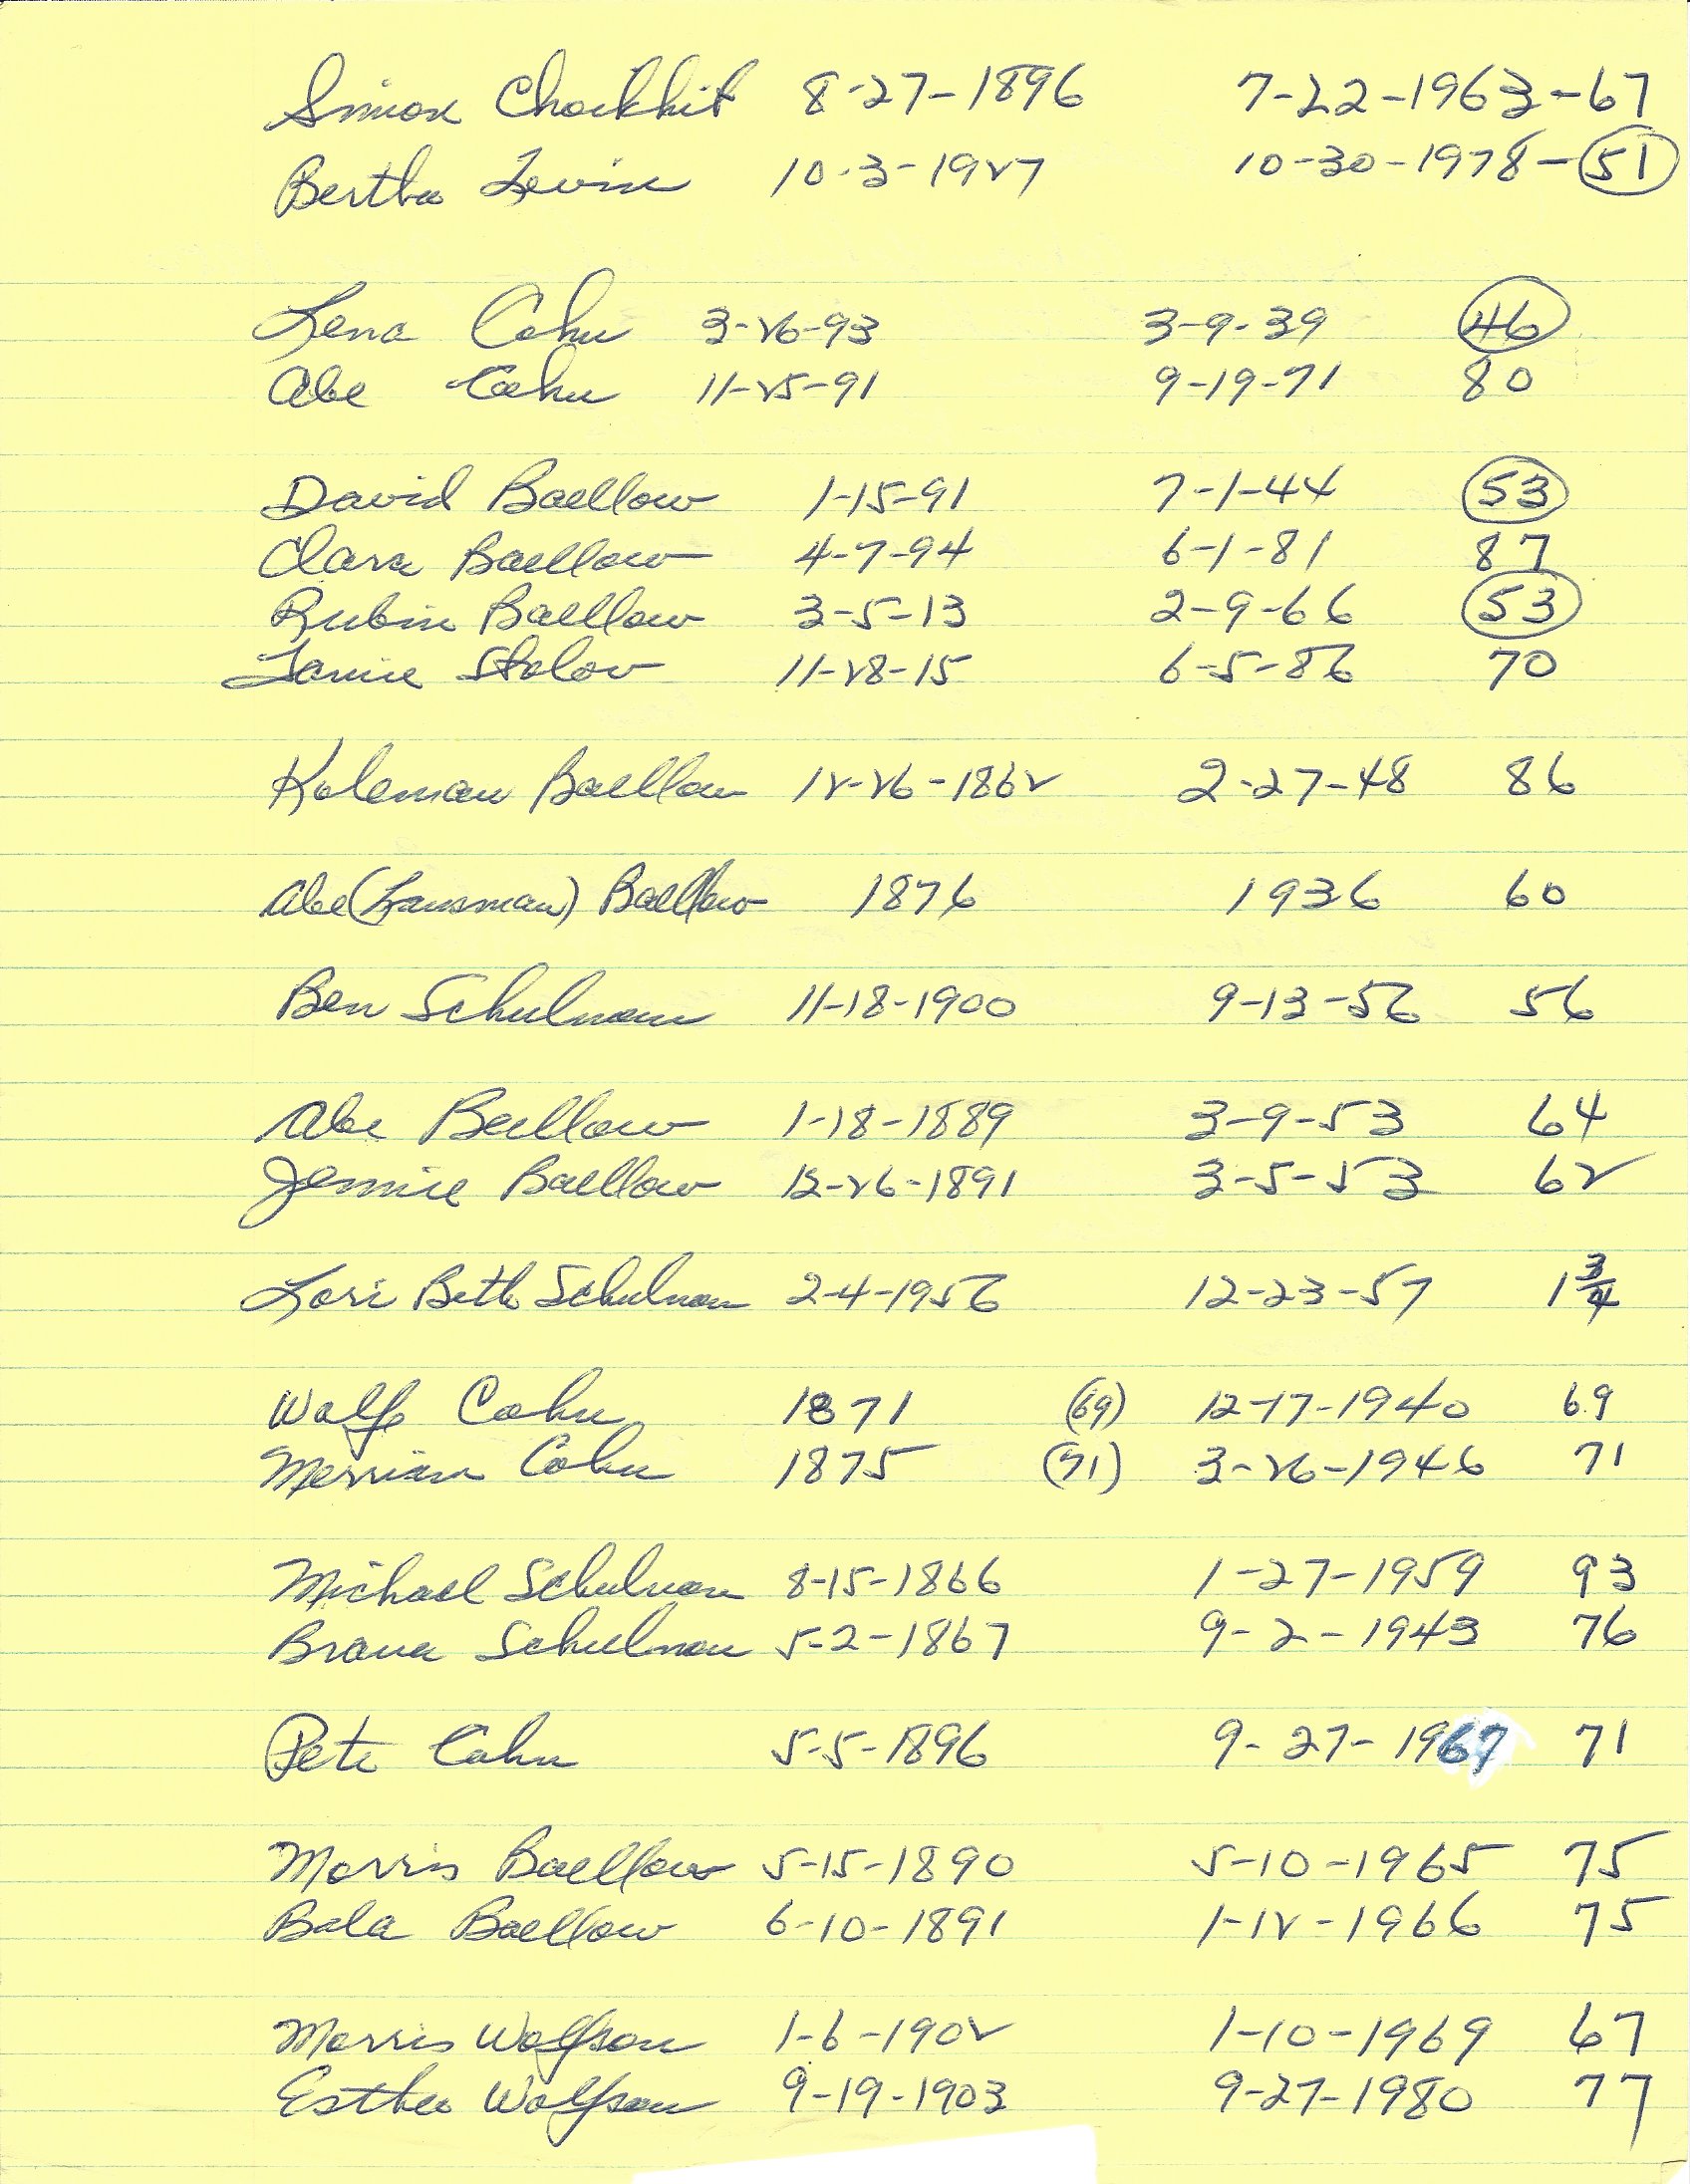 Simon Chockhit 8-27-1896 7-22-1963-67
Bertha Levin 10-3-1927 10-30-1978-51
Lena Cohn 3-26-93 3-9-39 46
Abe Cohn 11-25-91 9-19-71 80
David Baellow 1-15-91 7-1-44 53
Clara Baellow 4-7-94 6-1-81 87
Rubin Baellow 3-5-13 2-9-66 53
Janice Stolov 11-28-15 6-5-86 70
Koleman Baellow 12-26-1862 2-27-48 86
Abe (Lansman) Baellow 1876 1936 60
Ben Schulman 11-18-1900 9-13-56 56
Abe Baellow 1-18-1889 3-9-53 64
Jennie Baellow 12-26-1891 3-5-53 62
Lori Beth Schulman 2-4-1956 12-23-57 1 3/4
Wolf Cohn 1871 (69) 12-17-1940 69
Merriam Cohn 1875 (71) 3-26-1946 71
Michael Schulman 8-15-1866 1-27-1959 93
Brana Schulman 5-2-1867 9-2-1943 76
Pete Cohn 5-5-1896 9-27-1967 71
Morris Baellow 5-15-1890 5-10-1965 75
Bela Baellow 6-10-1891 1-12-1966 75
Morris Wolfson 1-6-1902 1-10-1969 67
Esther Wolfson 9-19-1903 9-27-1980 77